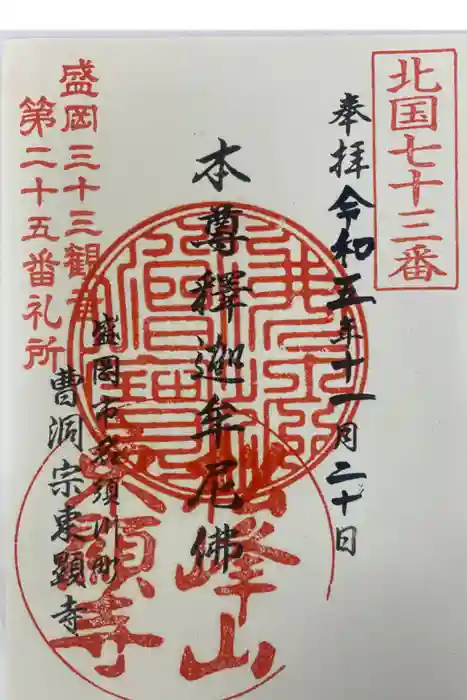 北国七十三番
奉拝令和五年十一月二十日
本尊釋迦牟尼佛
盛岡三十三観音
第二十五番礼所
盛岡市名須川町
曹洞宗東顕寺
松峰山
東顕寺